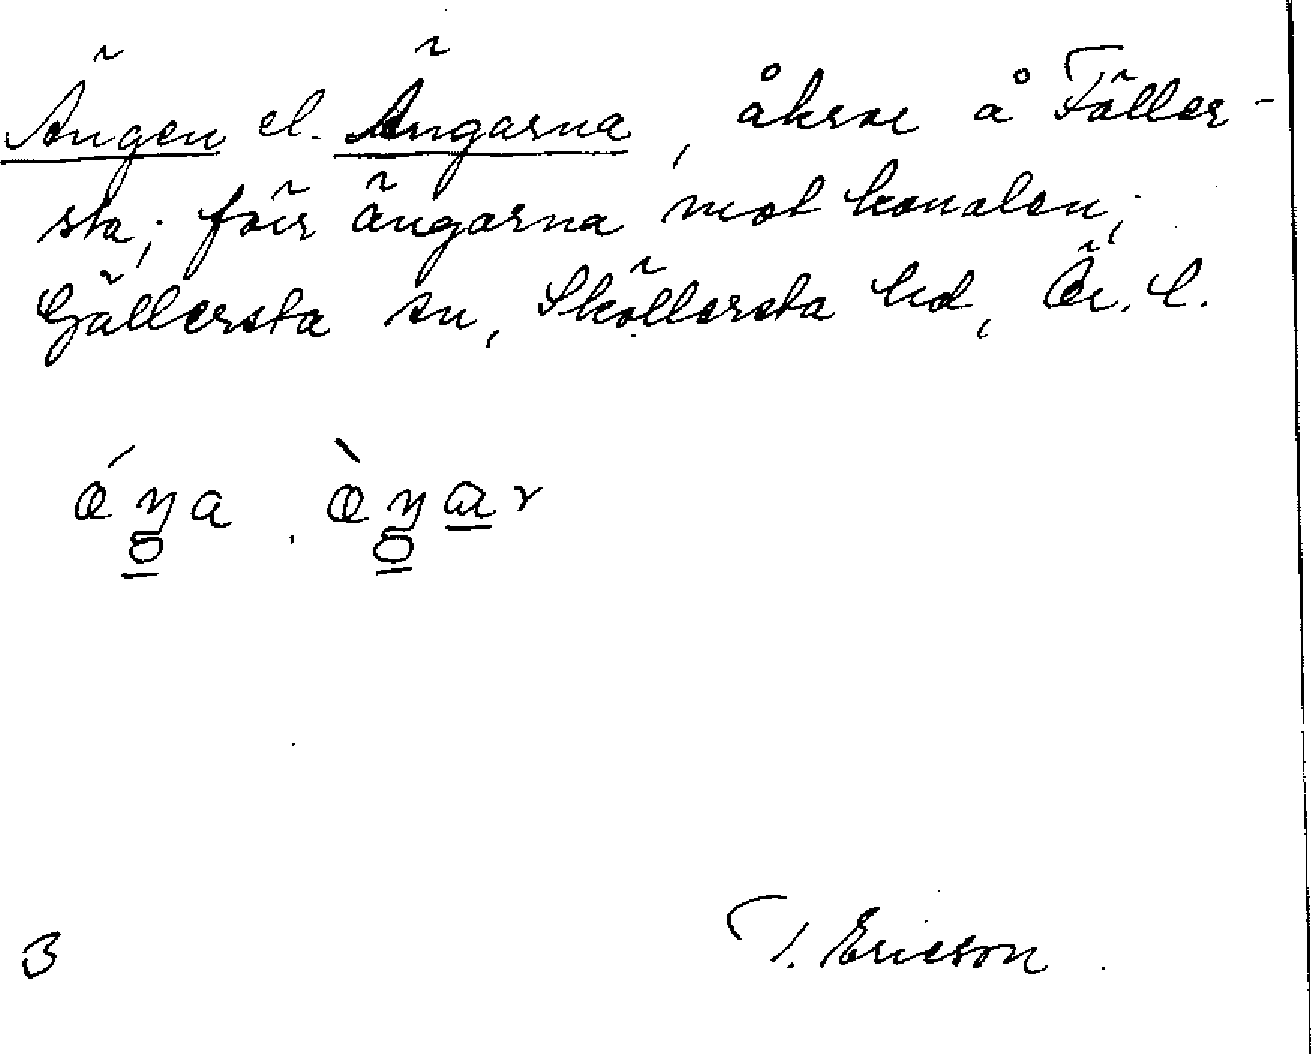 Ängen el. Ängarna, åkrar å Fäller-
sta; förr ängarna mot kanalen;
Gällersta sn, Sköllersta hd, Ör. l.
3
T. Ericson